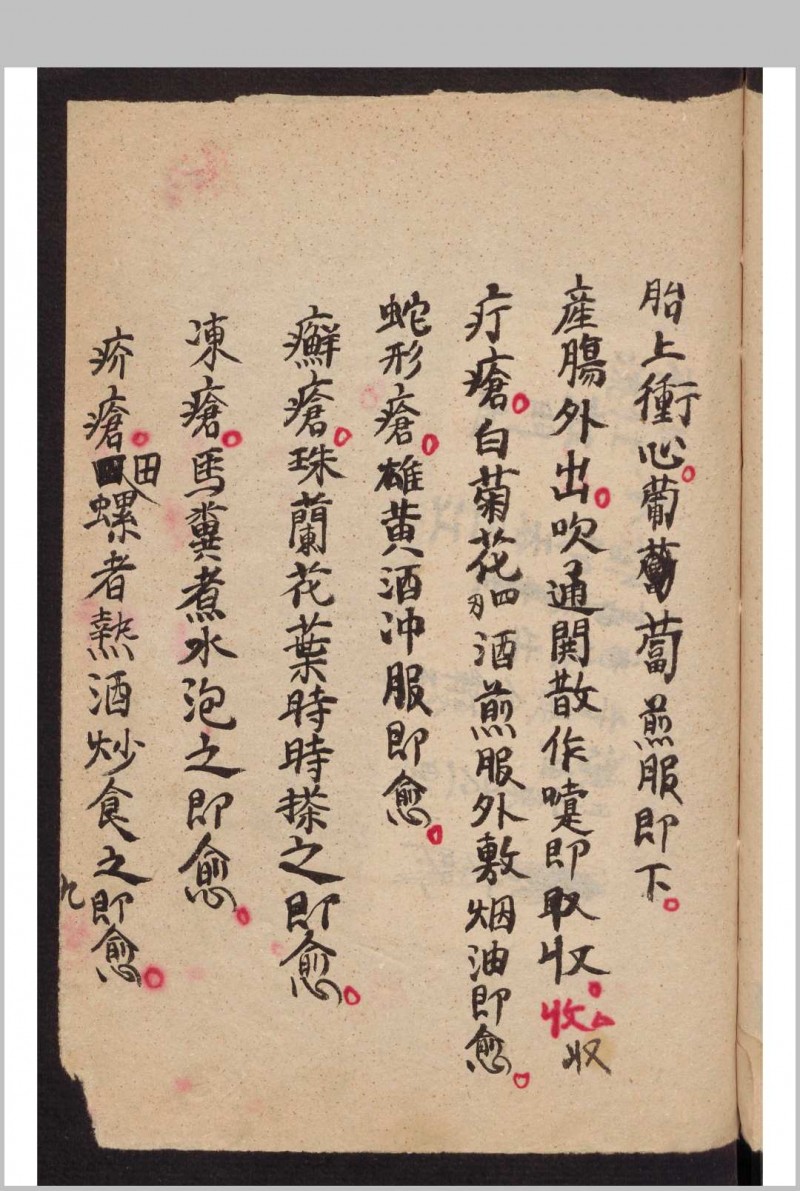 胎上衝心。葡萄蔔煎服即下。
産腸外出。吹通関散作嚏即取収。收収
疔瘡。白菊花四刄酒煎服外敷烟油即愈。
蛇形瘡。雄黄酒冲服即愈。
癬瘡。珠蘭花葉時時搽之即愈。
凍瘡。馬糞煮水泡之即愈。
疥瘡。田螺者熱酒炒食之即愈。
九